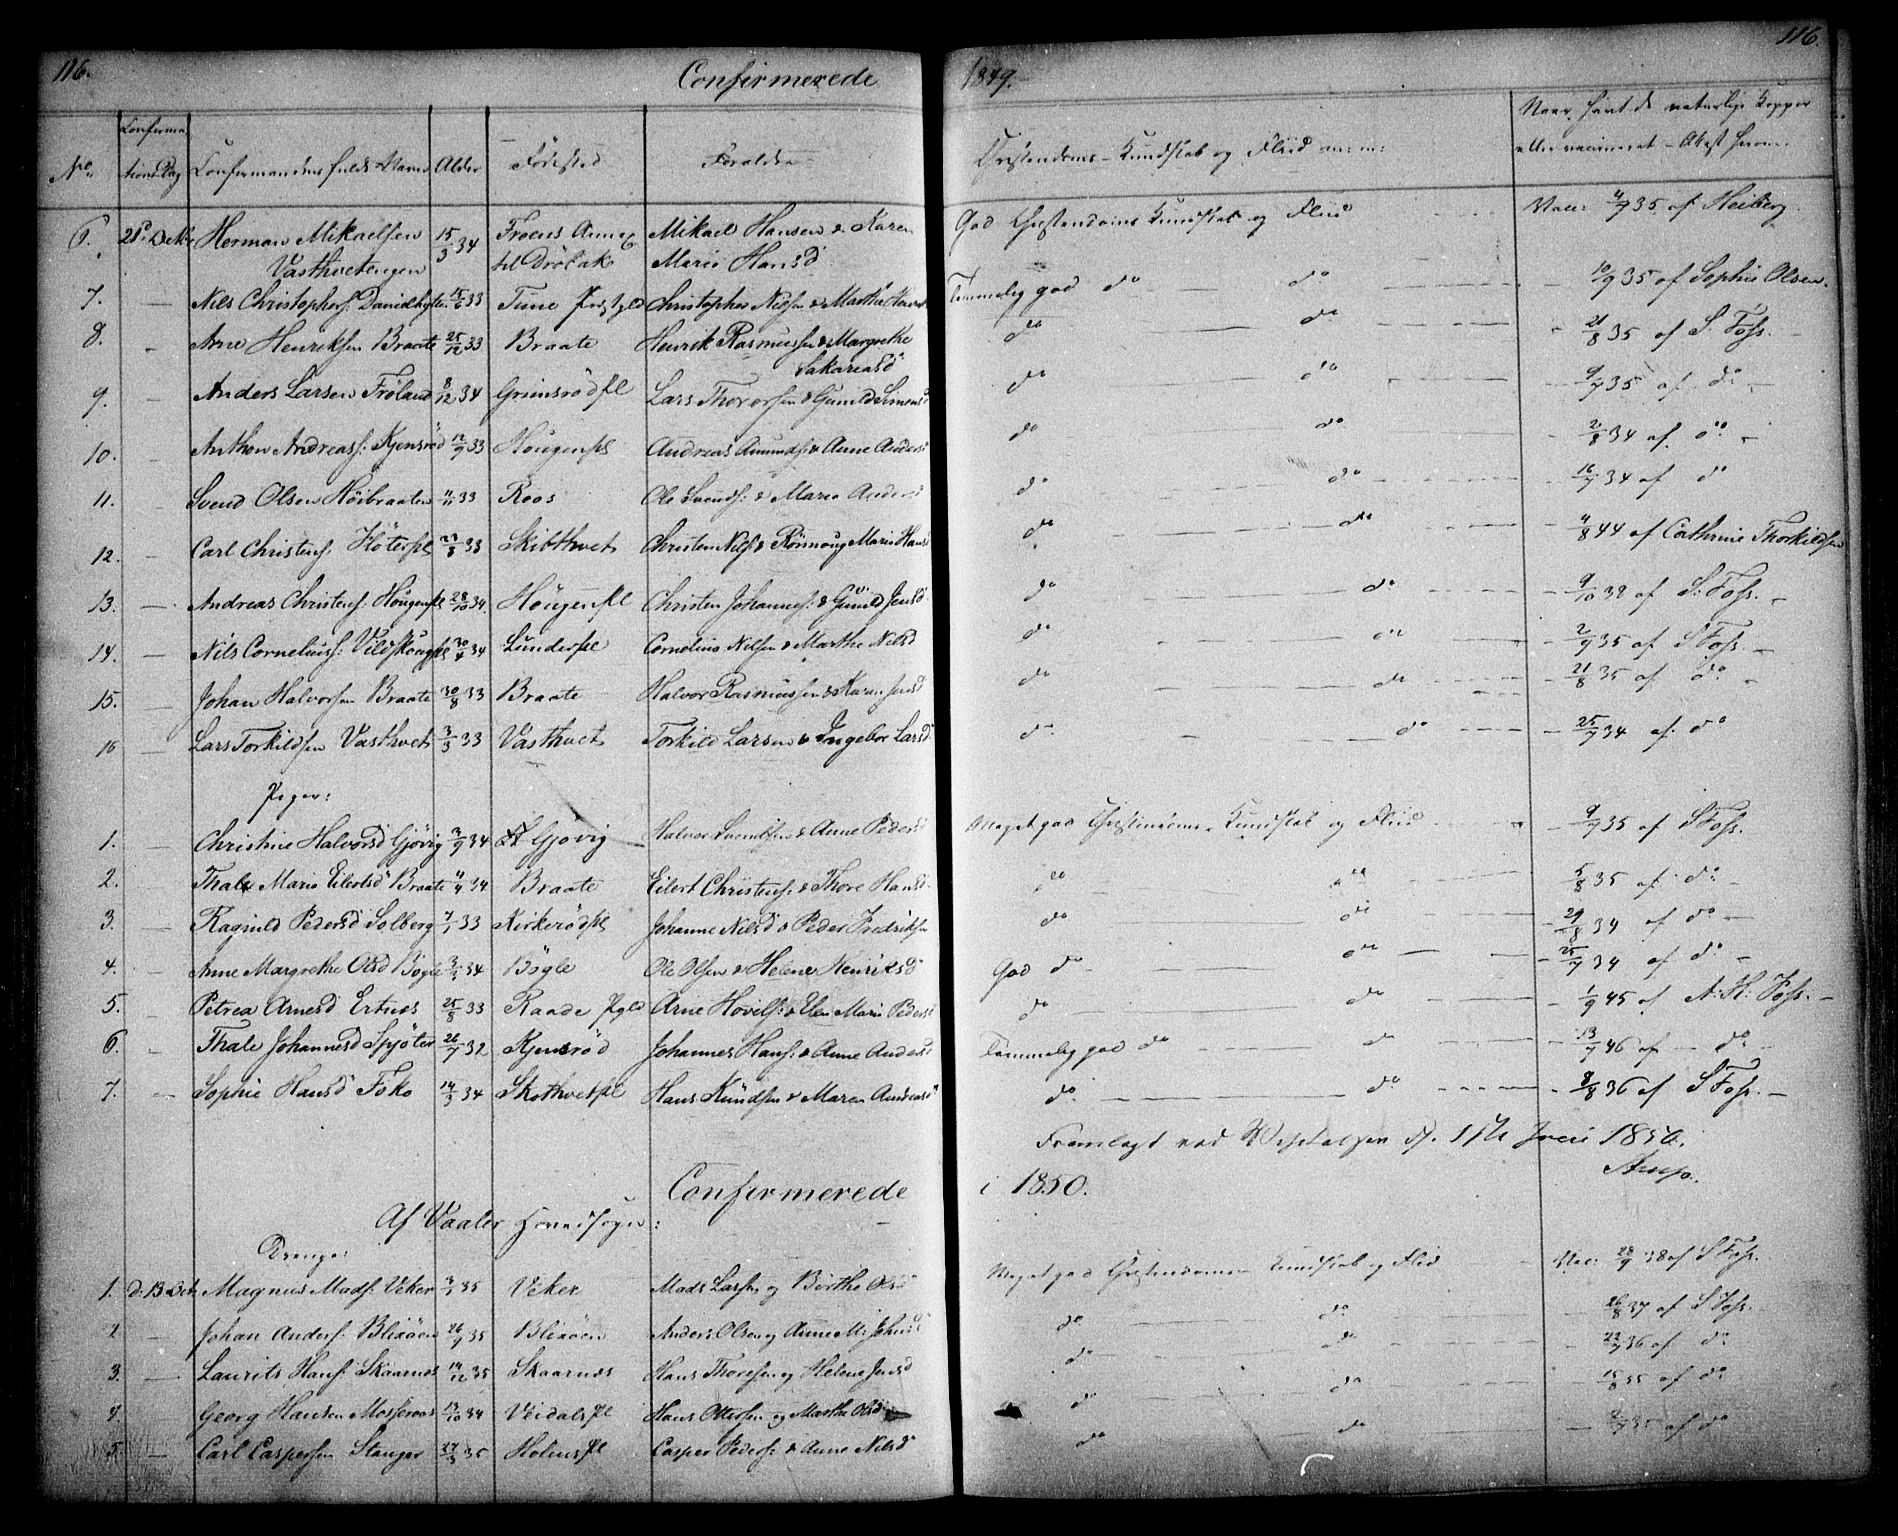 116. Confirmerede 1849. 116.
No. Confirmationsdag Confirmandens fulde Navn Alder Födested Forældre Christendoms-Kundskab og Fliid m: m: Naar havt de naturlige Kopper
eller vaccineret - Attest herom.
6. 2den Dcbr Herman Mikaelsen 15/3 34 Froens Annex Mikael Hansen & Karen God Christendoms Kundskab og Fliid Vacc: 4/9 35 af Heiberg
Vasthvetengen til Dröbak Marie Hansd
7. — Nils Christophers: Davidhytten 15/6 33 Tune Præstgld Christopher Nilsen & Marthe Temmelig god do do 10/9 35 af Sophie Olsen.
8. Arne Henriksen Braate 25/12 33 Braate Henrik Rasmussen & Margrethe do do 21/8 35 af S. Foss.
Sakariasd
9. — Anders Larsen Fröland 8/12 34 Grimsrödpl Lars Thorersen & Gunild Simensd do do 9/7 35 af do
10. — Anthon Andreass: Kjensröd 12/9 33 Hougenpl Andreas Amunds: & Anne Andersd do do 2/8 34 af do
11. — Svend Olsen Höibraaten 4/11 33 Roos Ole Svends: & Marie Andersd do do 16/7 34 af do
12. Carl Christens: Höterpl 23/8 33 Skibthvet Christen Nils: & Rönnoug Marie Hansd do do 4/8 44 af Cathrine Thorkildsen
13. — Andreas Christens: Hougenpl 28/10 34. Hougenpl Christen Johanness: & Gunild Jensd do do 9/10 38 af S: Foss.
14. — Nils Cornelius: Vildskougpl 30/4 34 Lunderpl Cornelius Nilsen & Marthe Nilsd do do 2/9 35 af S Foss.
15. — Johan Halvorsen Braate 30/8 33 Braate Halvor Rasmussen & Karen Jensd do do 21/8 35 af do
16 — Lars Torkildsen Vasthvet 3/3 33 Vasthvet Torkild Larsen & Ingebor Larsd do do 25/7 34 af. do
Piger:
1. Christine Halvorsd Gjövig 3/9 34 Gjövig Halvor Svendsen & Anne Pedersd Meget god Christendoms-Kundskab og Fliid 9/7 35 af S Foss.
2. — Thale Marie Eilertsd Braate 4/4 34 Braate Eilert Christens: & Thore Hansd do do 5/8 35 af do
3. — Ragnild Pedersd Solberg 7/1 33 Kirkerödpl Johanne Nilsd & Peder Fredriksen do do 29/8 34 af do
4. — Anne Margrethe Olsd Bögle 3/3 34 Bögle Ole Olsen & Helene Henriksd God do do 25/7 34 af do
5. — Petrea Arnesd Ertnes 25/8 33 Raade Pgld Arne Hovels: & Elen Marie Pedersd do do 1/9 45 af A: H: Foss.
6. — Thale Johannesd Spjöter 21/7 32 Kjensröd Johannes Hans: & Anne Andersd Temmelig god do do 13/7 46 af do
7. — Sophie Hansd Foko 14/3 34 Skothvetpl Hans Knudsen & Maren Andersd do do 8/8 36 af S Foss.
Fremlagt ved Visitatsen d. 17de Juni 1850.
Arup.
Confirmerede i 1850.
Af Vaaler Hovedsogn:
Drenge:
1. D: 13 Oct Magnus Mads: Veker 4/1 35 Veker Mads Larsen og Berthe Olsd Meget god Christendoms Kundskab og Flid Vac: 28/9 38 af S Foss.
2 — Johan Anders: Blixöen 26/9 35 Blixöen Anders Olsen og Anne M: Johnsd do do 26/8 37 af S Foss.
3. — Laurits Hans: Skaarnes 14/12 35 Skaarnes Hans Thoresen og Helene Jensd do do 22/7 36 af do
4. Georg Hansen Mosseroos 13/10 34 Veidalspl Hans Ottersen og Marthe Olsd do do 15/8 35 af do
5. — Carl Caspersen Stanger 27/3 35 Holmspl Casper Peders: & Anne Nilsd do do 35 af do